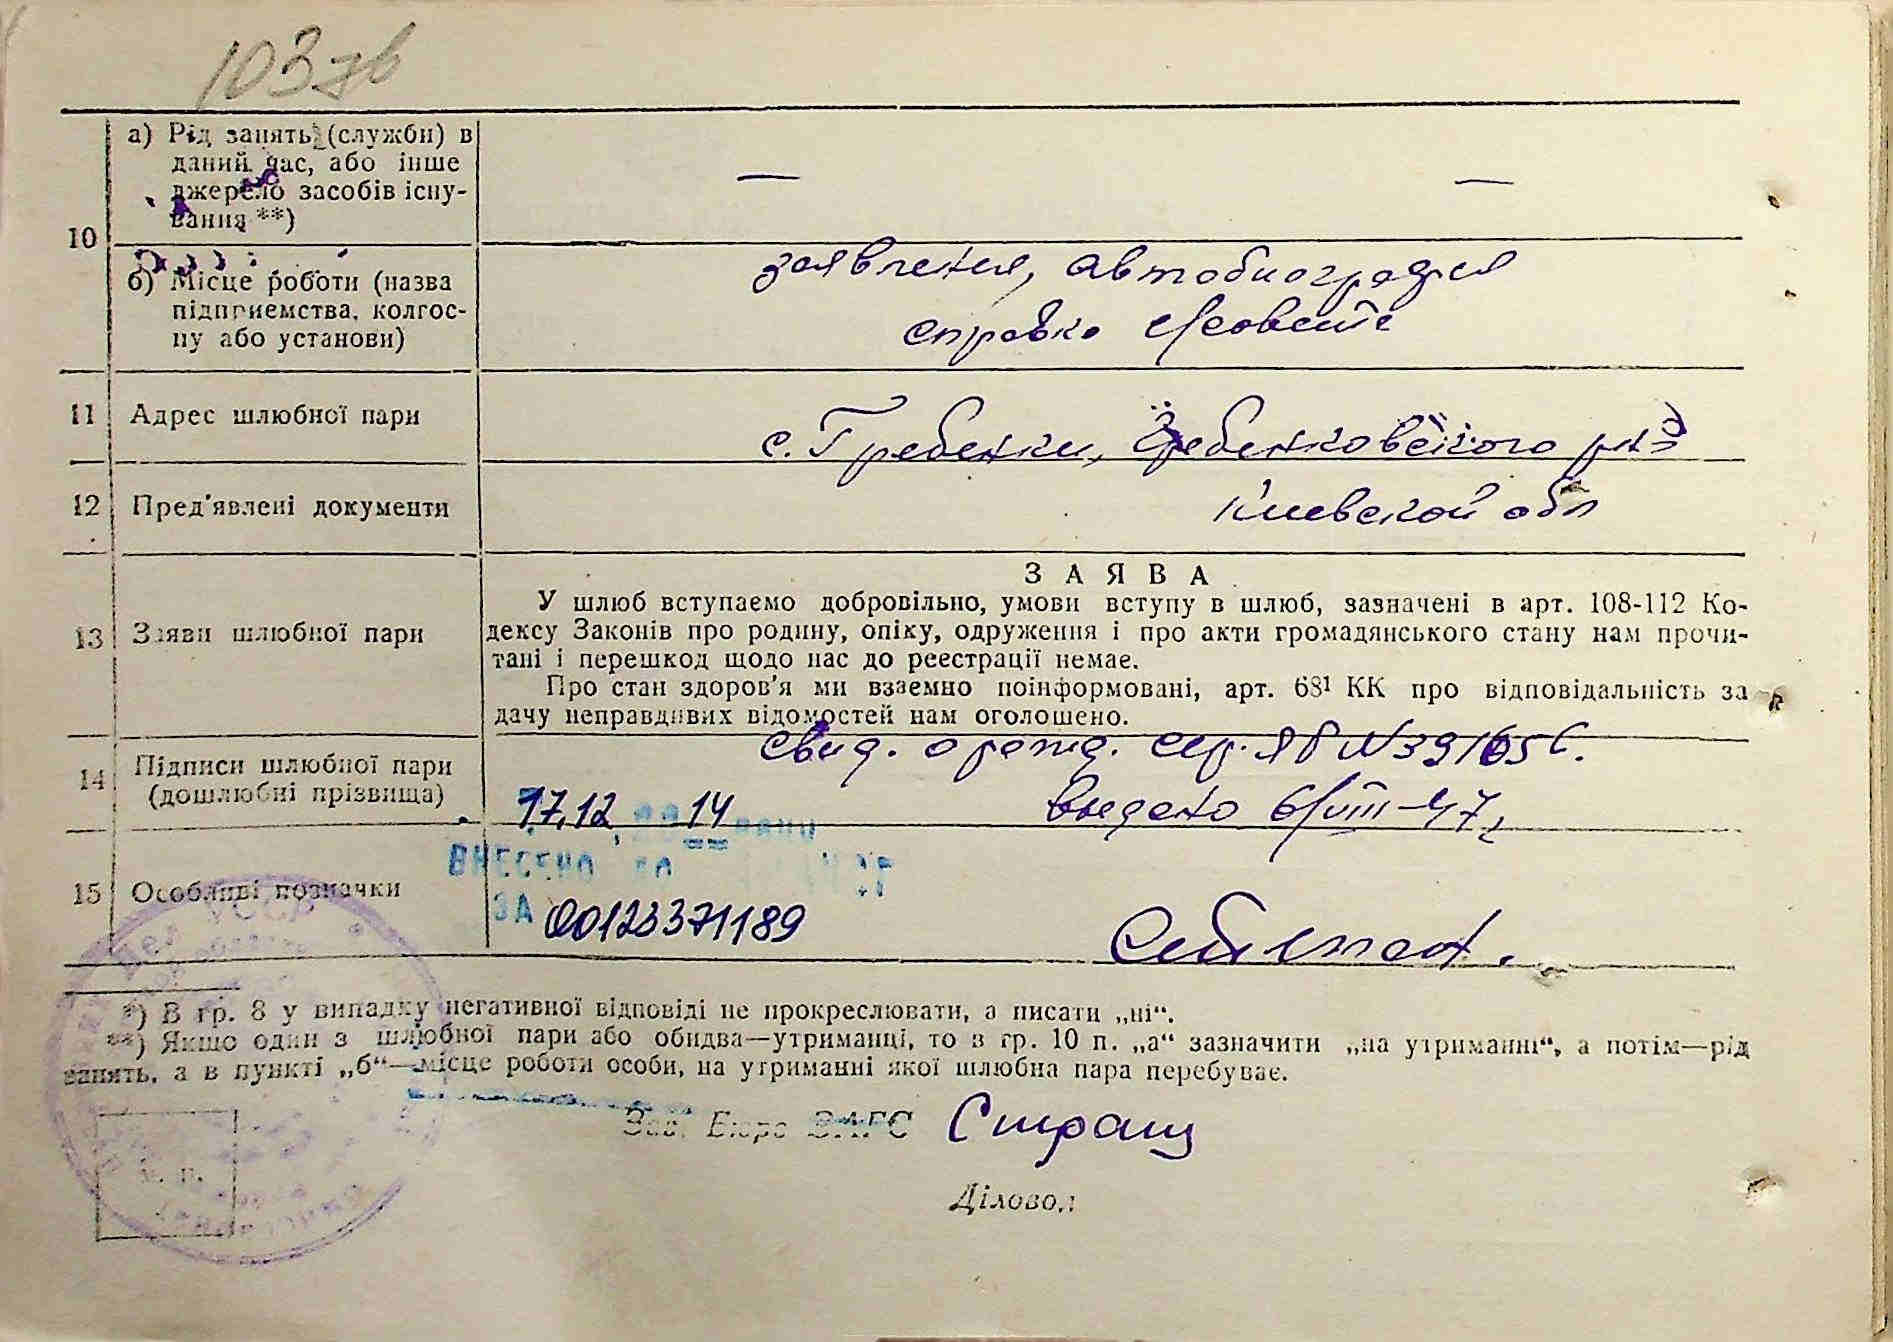 103 зв
10
а) Рід занять (служби) в
даний час, або інше
джерело засобів існу-
вання **)
— —
б) Місце роботи (назва
підприємства, колгос-
пу або установи)
заявления, автобиография
справка с/совета
11 Адрес шлюбної пари
с. Гребенки, Гребенковского р-на
12 Пред'явлені документи
Киевской обл
13 Заяви шлюбної пари
ЗАЯВА
У шлюб вступаємо добровільно, умови вступу в шлюб, зазначені в арт. 108-112 Ко-
дексу Законів про родину, опіку, одруження і про акти громадянського стану нам прочи-
тані і перешкод щодо нас до реєстрації немає.
Про стан здоров'я ми взаємно поінформовані, арт. 68¹ КК про відповідальність за
дачу неправдивих відомостей нам оголошено.
свид. о рожд. сер. ЯБ №
14 Підписи шлюбної пари
(дошлюбні прізвища)
17.12. 14
выдано 6/VIII-47
ВНЕСЕНО ДО
15 Особливі позначки
ЗА 00123371189
*) В гр. 8 у випадку негативної відповіді не прокреслювати, а писати „ні“.
**) Якщо один з шлюбної пари або обидва—утриманці, то в гр. 10 п. „а“ зазначити „на утриманні“, а потім—рід
занять, а в пункті „б“—місце роботи особи, на утриманні якої шлюбна пара перебуває.
Зав. Бюро ЗАГС
Діловод
м. п.